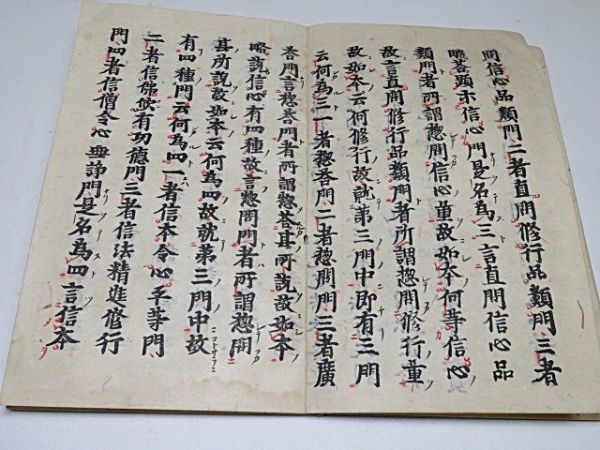 問信心品類門二者直問修行品類門三者
略荅顕示信心門是名為三言直問信心品
類門者所謂惣問信心量故如本何等信心
故言直問修行品類門者所謂惣問修行量
故如本云何修行故就第三門中即有三門
云何為三一者惣荅門二者惣問門三者廣
荅門言惣荅門者所謂惣荅其所說故如本
略說信心有四種故言惣問門者所謂惣問
其所說故如本云何為四故就第三門中故
有四種門云何為四一者信本令心平等門
二者信佛有功德門三者信法精進修行
門四者信僧令心無諍門是名為四言信本